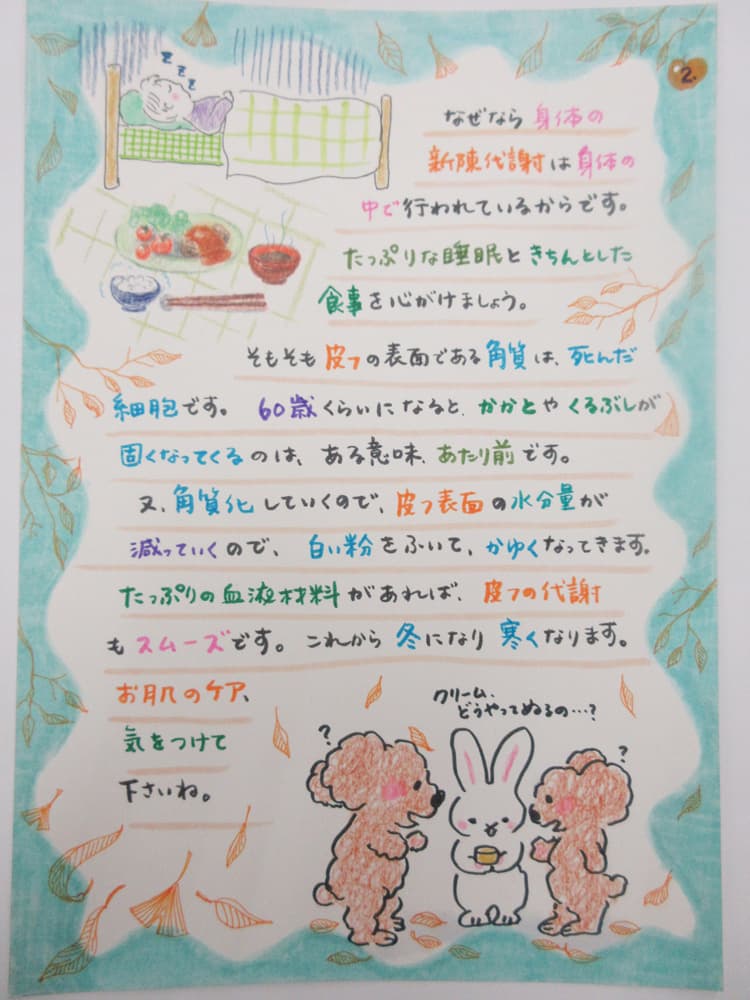 2.
zzz
なぜなら身体の
新陳代謝は身体の
中で行われているからです。
たっぷりな睡眠ときちんとした
食事を心がけましょう。
そもそも皮フの表面である角質は、死んだ
細胞です。60歳くらいになると、かかとやくるぶしが
固くなってくるのは、ある意味、あたり前です。
又、角質化していくので、皮フ表面の水分量が
減っていくので、白い粉をふいて、かゆくなってきます。
たっぷりの血液材料があれば、皮フの代謝
もスムーズです。これから冬になり寒くなります。
お肌のケア、
気をつけて
下さいね。
クリーム、
どうやってぬるの…?
?
?